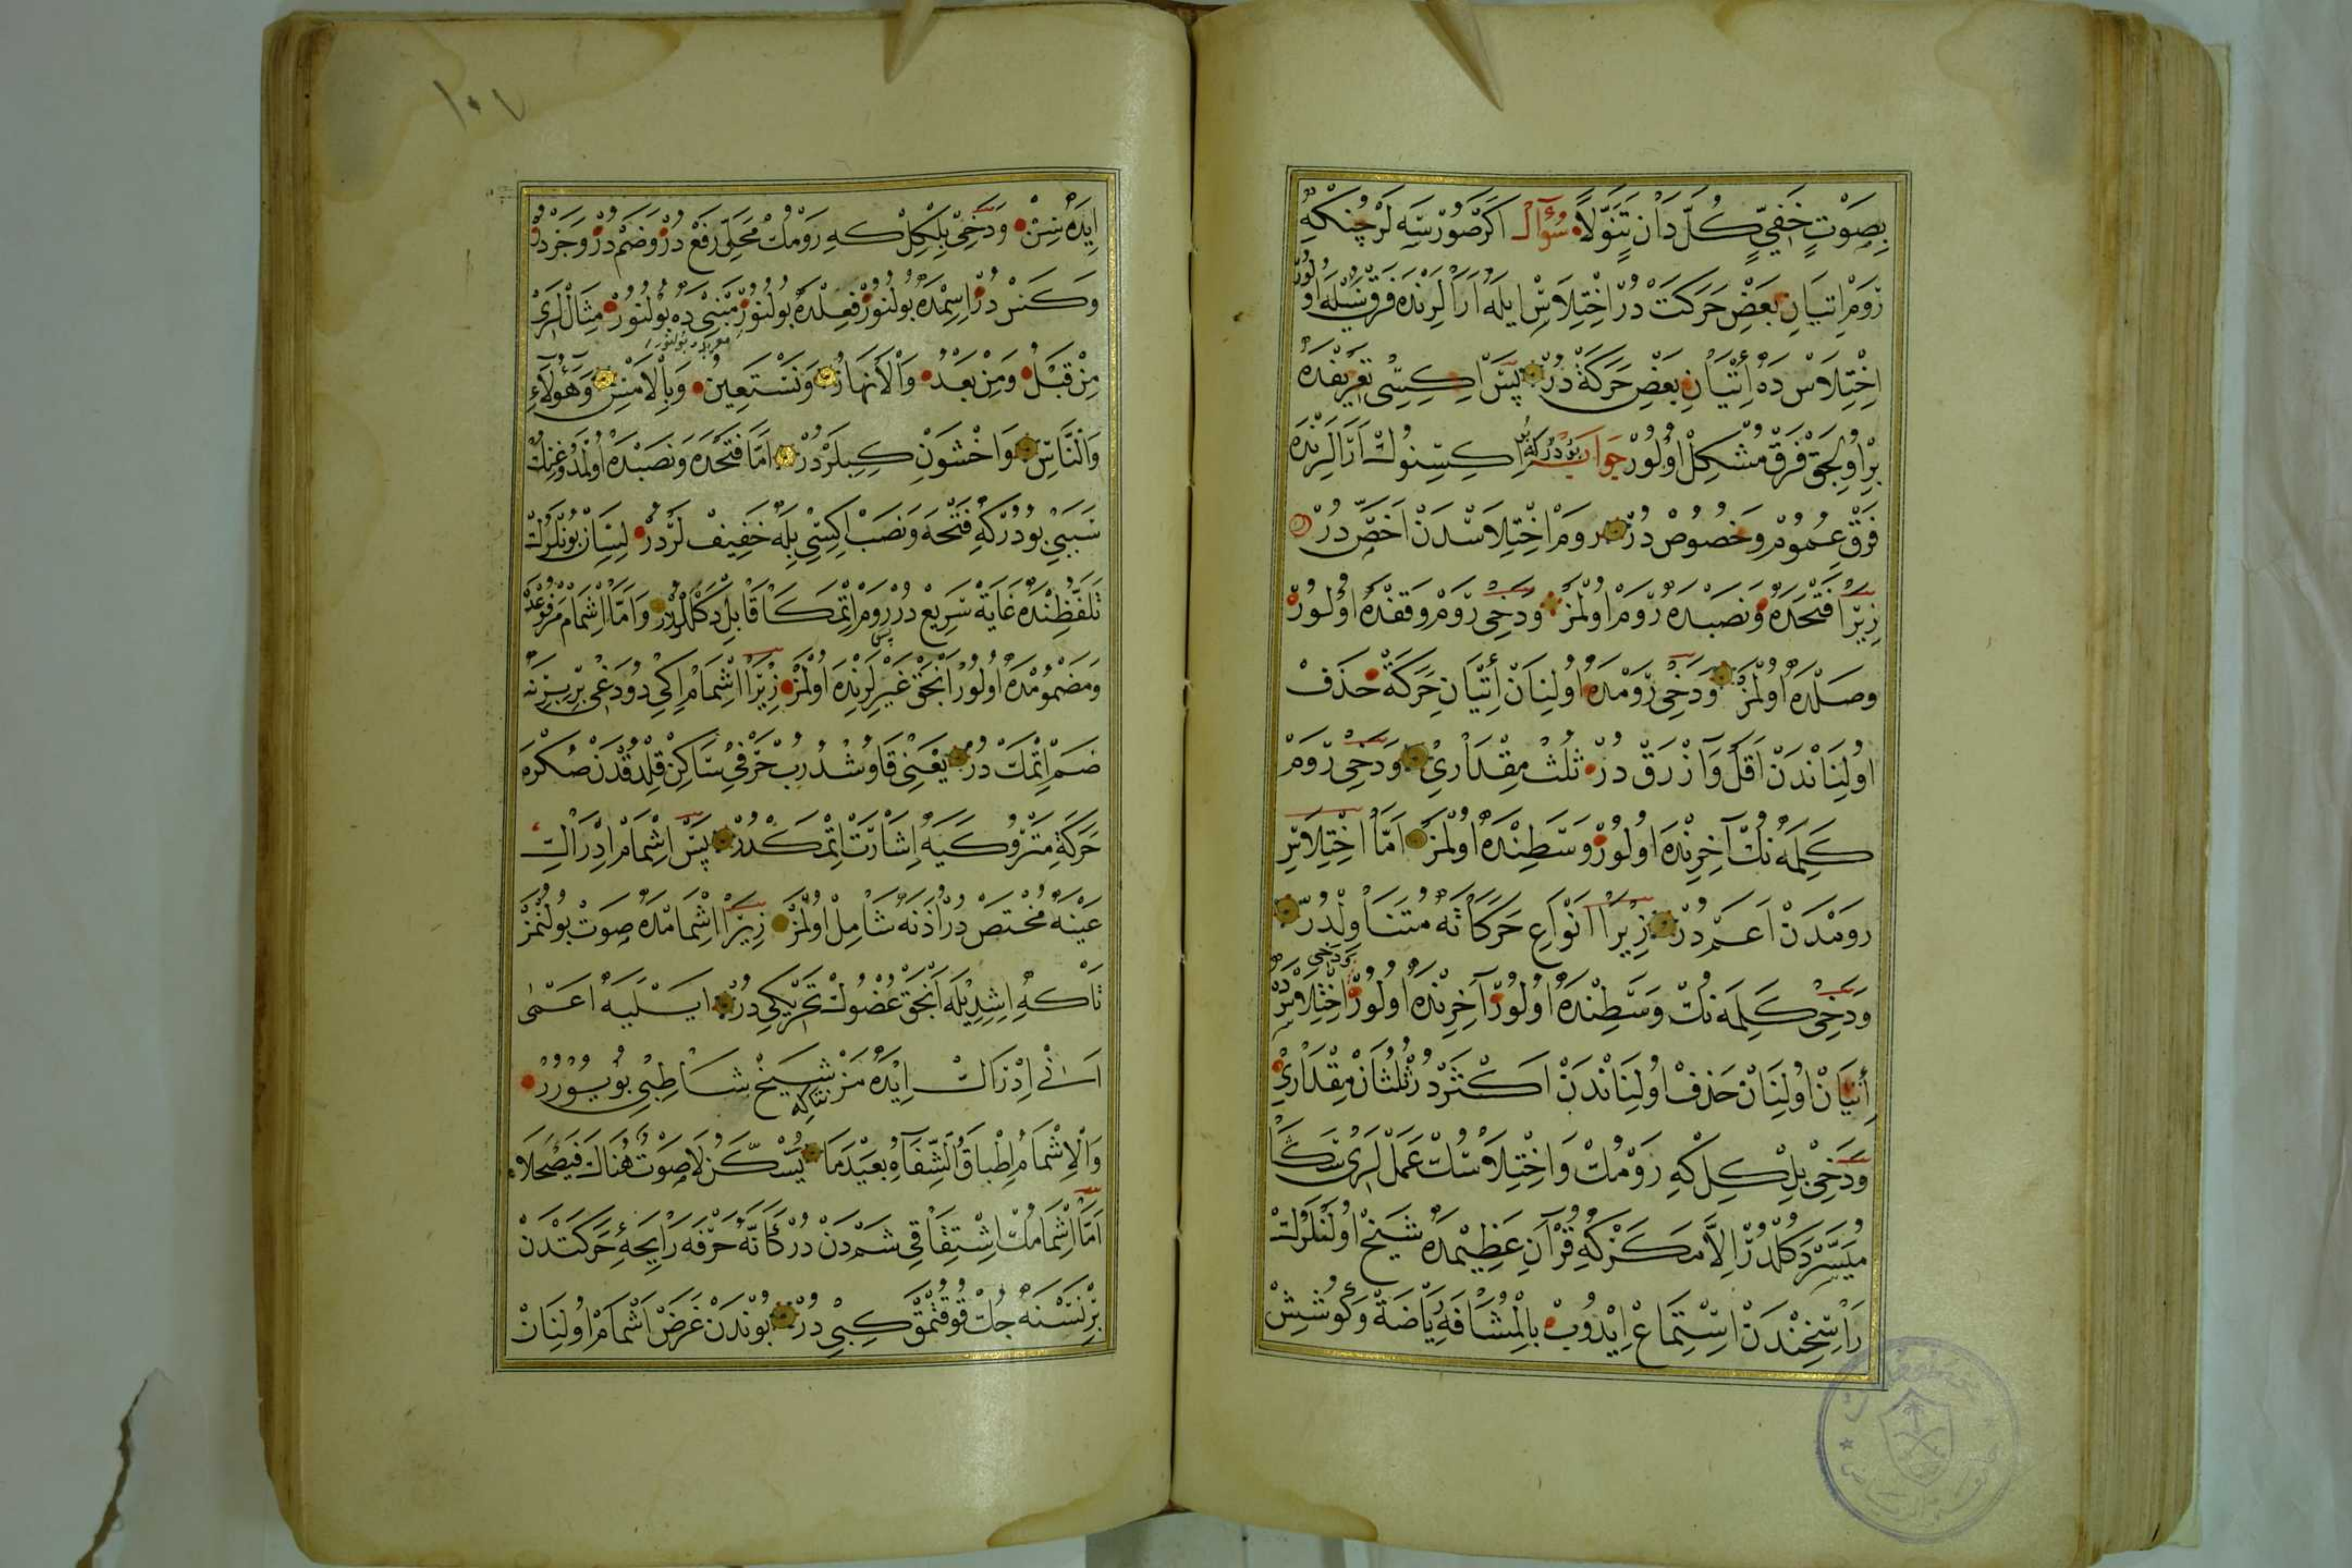 بِصَوْتٍ خَفِيٍّ كُلَّ دَانٍ تَنَوَّلَا سُؤَالْ اَكَرْ صُورْسَه لَرْ چُنْكِه
رَوْمْ اِتْيَانِ بَعْضِ حَرَكَتْ دُرْ اِخْتِلَاسْ اِيلَه اَرَالَرِنْدَه فَرْق نِيلَه اُولُورْ
اِخْتِلَاسْ دَه اِتْيَانِ بَعْضِ حَرَكَة دُرْ پَسْ اِكِيسِى تَعْرِيفْدَه
بِرْ اُولِيجَقْ فَرْق مُشْكِلْ اُولُورْ جَوَابْ بُودُرْكِه بُو اِكِيسِنُوكْ اَرَالَرِنْدَه
فَرْقِ عُمُومْ وَخُصُوصْ دُرْ رَوْمْ اِخْتِلَاسْدَنْ اَخَصّ دُرْ
زِيرَا فَتْحَدَه وَنَصَبْدَه رَوْمْ اُولْمَزْ وَدَخِى رَوْمْ وَقْفْدَه اُولُورْ
وَصْلْدَه اُولْمَزْ وَدَخِى رَوْمْدَه اُولِنَانْ اِتْيَانِ حَرَكَة حَذْفْ
اُولِنَانْدَنْ اَقَلّ وَازْرَقْ دُرْ ثُلُثْ مِقْدَارِى وَدَخِى رَوْمْ
كَلِمَه نُكْ آخِرِنْدَه اُولُورْ وَسَطِنْدَه اُولْمَزْ اَمَّا اِخْتِلَاسْ
رَوْمْدَنْ اَعَمّ دُرْ زِيرَا اَنْوَاعِ حَرَكَاتَه مُتَنَاوِلْدُرْ
وَدَخِى كَلِمَه نُكْ وَسَطِنْدَه اُولُورْ آخِرِنْدَه اُولُورْ وَدَخِى اِخْتِلَاسْدَه
اِتْيَانْ اُولِنَانْ حَذْفْ اُولِنَانْدَنْ اَكْثَرْ دُرْ ثُلُثَانْ مِقْدَارِى
وَدَخِى بِلْكِلْ كِه رَوْمُكْ وَاِخْتِلَاسُكْ عَمَلْلَرِى سَكَا
مُيَسَّرْ دَكُلْدُرْ اِلَّا مَكَرْكِه قُرْآنِ عَظِيمْدَه شَيْخْ اُولَنْلَرُكْ
رَاسِخِنْدَنْ اِسْتِمَاعْ اِيدُوبْ بِالْمُشَافَهَه رِيَاضَةْ وَكُوشِشْ
١٠٧
اِيدَه سِنْ وَدَخِى بِلْكِلْ كِه رَوْمُكْ مَحَلِّى رَفْعْ دُرْ وَضَمّ دُرْ وَجَرّ دُرْ
وَكَسْرْ دُرْ اِسِمْدَه بُولُنُورْ فِعِلْدَه بُولُنُورْ مَبْنِى دَه بُولُنُورْ مِثَالْلَرِى
مِنْ قَبْلُ وَمِنْ بَعْدُ وَالْاَنْهَارُ وَنَسْتَعِينُ وَبِالْاَمْسِ وَهٰؤُلَاءِ
وَالنَّاسِ وَاخْشَوْنِ كِبِيلَرْدُرْ اَمَّا فَتْحَدَه وَنَصَبْدَه اُولْمَدُوغِنُكْ
سَبَبِى بُودُرْكِه فَتْحَه وَنَصَبْ اِكِيسِى بِلَه خَفِيفْلَرْدُرْ لِسَانْ بُونْلَرُكْ
تَلَفُّظِنْدَه غَايَة سَرِيعْ دُرْ رَوْمْ اِتْمَكَا قَابِلْ دَكُلْلَرْدُرْ وَاَمَّا اِشْمَامْ مَرْفُوعْدَه
وَمَضْمُومْدَه اُولُورْ اَنْجَقْ غَيْرِلَرِنْدَه اُولْمَزْ زِيرَا اِشْمَامْ اِكِى دُودَغِى بِرْ بِرِنَه
ضَمّ اِتْمَكْ دُرْ يَعْنِى قَاوُشْدُرُبْ حَرْفِى سَاكِنْ قِلْدُقْدَنْ صُكْرَه
حَرَكَةِ مَتْرُوكَيَه اِشَارَتْ اِتْمَكْدُرْ پَسْ اِشْمَامْ اِدْرَاكِ
عَيْنَه مُخْتَصّ دُرْ اُذْنَه شَامِلْ اُولْمَزْ زِيرَا اِشْمَامْدَه صَوْتْ بُولُنْمَزْ
تَاكِه اِشِدِيلَه اَنْجَقْ عُضْوُكْ تَحْرِيكِى دُرْ اِيسْلَيَه اَعْمٰى
اَنِى اِدْرَاكْ اِيدَه مَزْ نِتَاكِه شَيْخْ شَاطِبِى بُويُورُرْ
وَالْاِشْمَامُ اِطْبَاقُ الشِّفَاهِ بُعَيْدَ مَا يُسَكَّنُ لَا صَوْتٌ هُنَاكَ فَيَصْحَلَا
اَمَّا اِشْمَامُكْ اِشْتِقَاقِى شَمّ دَنْ دُرْ كَاَنَّهُ حَرْفَه رَايِحَهءِ حَرَكَتْدَنْ
بِرْ نَسْنَه جُكْ قُوقُتْمَقْ كِبِى دُرْ بُونْدَنْ غَرَضْ اِشْمَامْ اُولِنَانْ